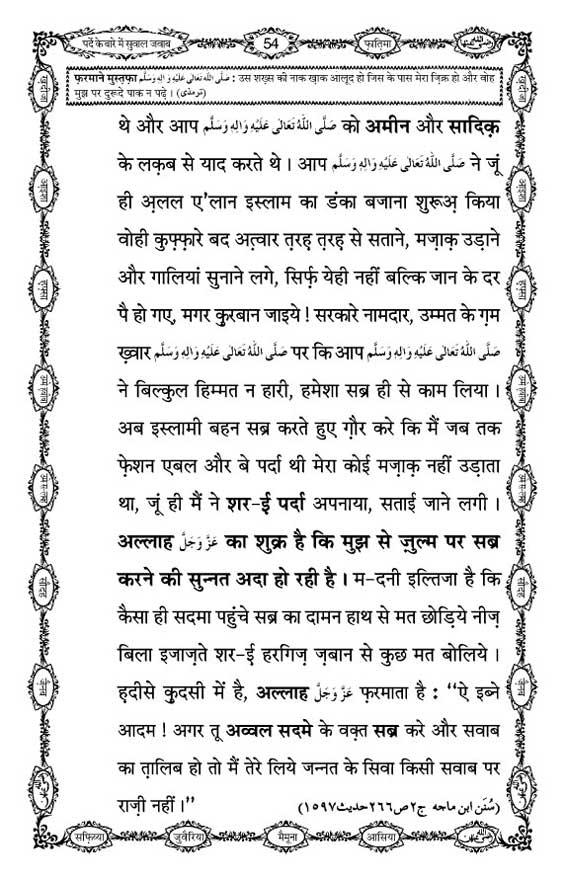 पर्दे के बारे में सुवाल जवाब
54
फ़ातिमा
फ़रमाने मुस्तफ़ा صَلَّى اللّٰهُ تَعَالٰى عَلَيْهِ وَاٰلِهٖ وَسَلَّم : उस शख़्स की नाक ख़ाक आलूद हो जिस के पास मेरा ज़िक्र हो और वोह
मुझ पर दुरूदे पाक न पढ़े। (ترمذی)
थे और आप صَلَّى اللّٰهُ تَعَالٰى عَلَيْهِ وَاٰلِهٖ وَسَلَّم को अमीन और सादिक़
के लक़ब से याद करते थे। आप صَلَّى اللّٰهُ تَعَالٰى عَلَيْهِ وَاٰلِهٖ وَسَلَّم ने जूं
ही अ़लल ए'लान इस्लाम का डंका बजाना शुरूअ़ किया
वोही कुफ़्फ़ारे बद अत़्वार त़रह़ त़रह़ से सताने, मज़ाक़ उड़ाने
और गालियां सुनाने लगे, सिर्फ़ येही नहीं बल्कि जान के दर
पै हो गए, मगर क़ुरबान जाइये ! सरकारे नामदार, उम्मत के ग़म
ख़्वार صَلَّى اللّٰهُ تَعَالٰى عَلَيْهِ وَاٰلِهٖ وَسَلَّم पर कि आप صَلَّى اللّٰهُ تَعَالٰى عَلَيْهِ وَاٰلِهٖ وَسَلَّم
ने बिल्कुल हिम्मत न हारी, हमेशा सब्र ही से काम लिया।
अब इस्लामी बहन सब्र करते हुए ग़ौर करे कि मैं जब तक
फ़ेशन एबल और बे पर्दा थी मेरा कोई मज़ाक़ नहीं उड़ाता
था, जूं ही मैं ने शर-ई पर्दा अपनाया, सताई जाने लगी।
अल्लाह عَزَّ وَجَلَّ का शुक्र है कि मुझ से ज़ुल्म पर सब्र
करने की सुन्नत अदा हो रही है। म-दनी इल्तिजा है कि
कैसा ही सदमा पहुंचे सब्र का दामन हाथ से मत छोड़िये नीज़
बिला इजाज़ते शर-ई हरगिज़ ज़बान से कुछ मत बोलिये।
ह़दीसे क़ुदसी में है, अल्लाह عَزَّ وَجَلَّ फ़रमाता है : ‘‘ऐ इब्ने
आदम ! अगर तू अव्वल सदमे के वक़्त सब्र करे और सवाब
का त़ालिब हो तो मैं तेरे लिये जन्नत के सिवा किसी सवाब पर
राज़ी नहीं।’’ (سُنَن ابن ماجه ج۲ص۲٦٦حدیث۱۵۹۷)
सफ़िय्या
जुवैरिया
मैमूना
आसिया